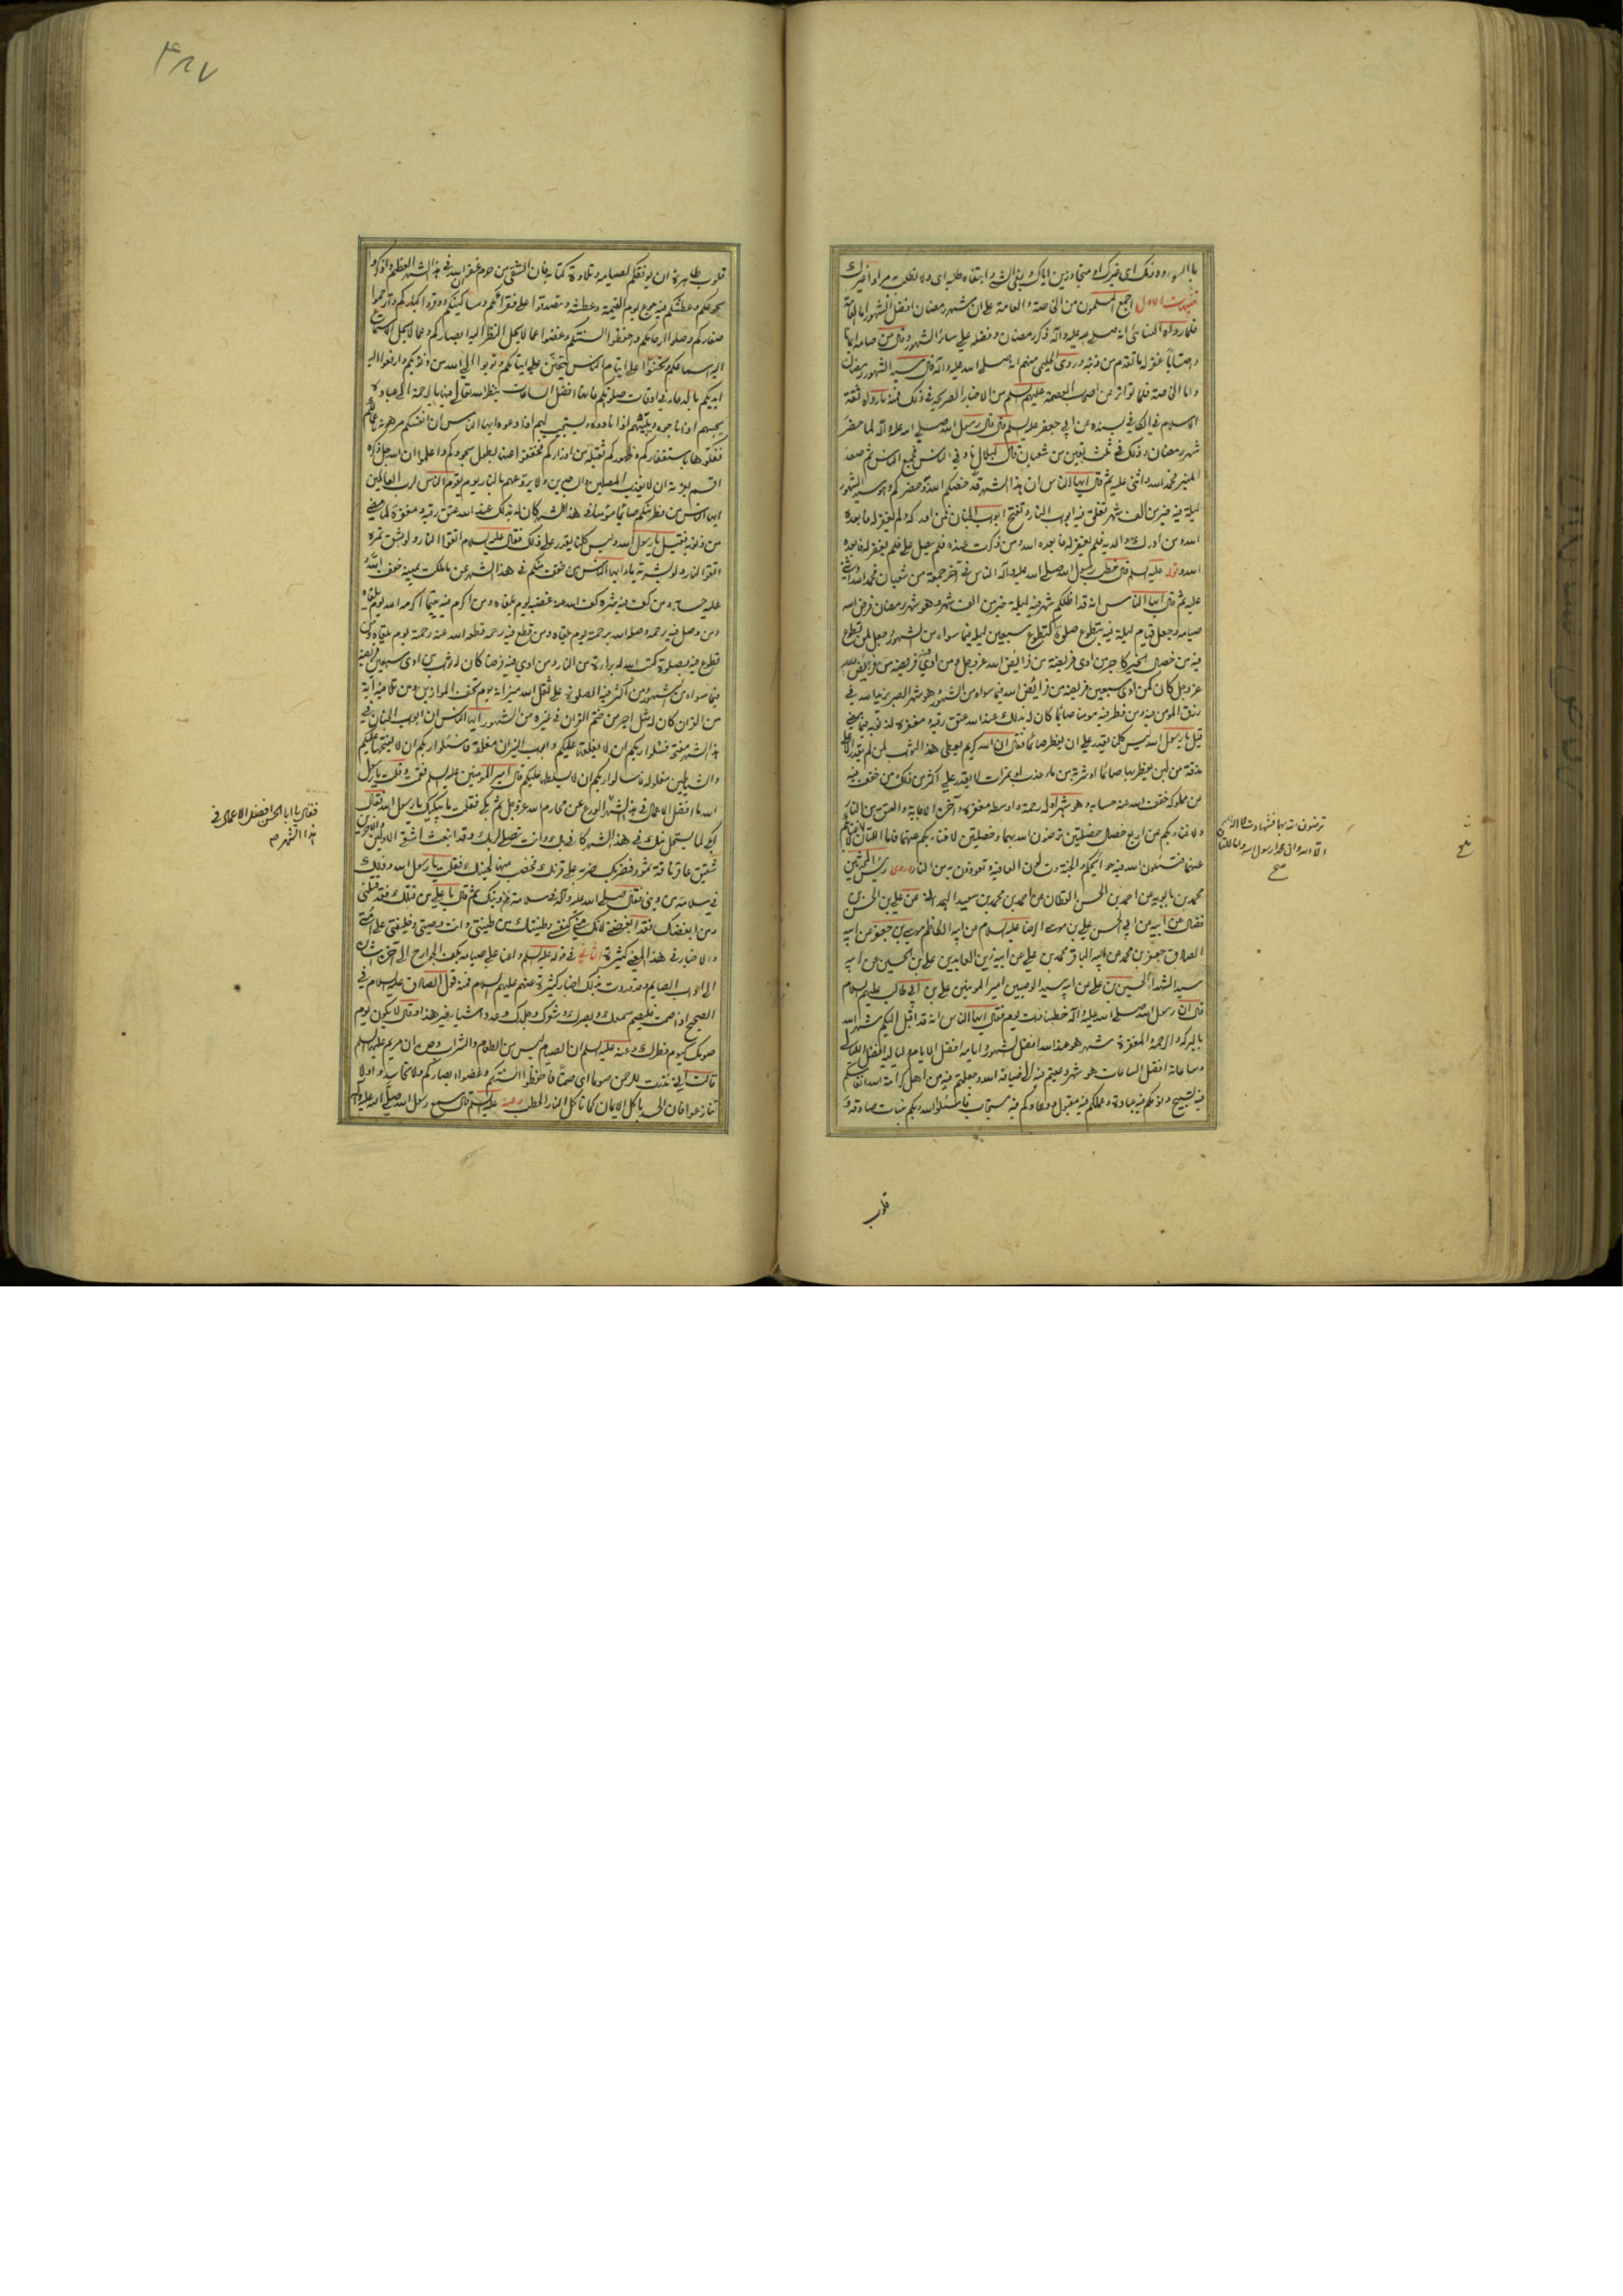 تنبيهات الاول اجمع المسلمون من الخاصة والعامة على ان شهر رمضان افضل الشهور اما العامة
فلما رواه النسائى انه صلى الله عليه وآله ذكر رمضان وفضله على سائر الشهور وقال من صامه ايمانا
واحتسابا غفر له ما تقدم من ذنبه وروى الحليمى عنهم انه صلى الله عليه وآله قال سيد الشهور رمضان
واما الخاصة فلما تواتر من اصحاب العصمة عليهم السلم من الاخبار الصريحة فى ذلك فمنه ما رواه ثقة
الاسلام فى الكافى بسنده عن ابى جعفر عليه السلم قال قال رسول الله صلى الله عليه وآله لما حضر
شهر رمضان وذلك فى ثلث بقين من شعبان قال لبلال ناد فى الناس فجمع الناس ثم صعد
المنبر فحمد الله واثنى عليه ثم قال ايها الناس ان هذا الشهر قد خصكم الله به وحضركم وهو سيد الشهور
ليلة فيه خير من الف شهر تغلق فيه ابواب النار وتفتح ابواب الجنان فمن ادركه ولم يغفر له فابعده
الله ومن ادرك والديه فلم يغفر له فابعده الله ومن ذكرت عنده فلم يصل على فلم يغفر له فابعده
الله وعنه عليه السلم قال خطب رسول الله صلى الله عليه وآله الناس فى آخر جمعة من شعبان فحمد الله واثنى
عليه ثم قال ايها الناس انه قد اظلكم شهر فيه ليلة خير من الف شهر وهو شهر رمضان فرض الله
صيامه وجعل قيام ليلة فيه بتطوع صلوة كتطوع سبعين ليلة فيما سواه من الشهور وجعل لمن تطوع
فيه من خصال الخير كاجر من ادى فريضة من فرائض الله عز وجل ومن ادى فيه فريضة من فرائض الله
عز وجل كان كمن ادى سبعين فريضة من فرائض الله فيما سواه من الشهور وهو شهر الصبر يزيد الله فى
رزق المومن فيه ومن فطر فيه مومنا صائما كان له بذلك عند الله عتق رقبة ومغفرة لذنوبه فيما مضى
قيل يا رسول الله ليس كلنا يقدر على ان يفطر صائما فقال ان الله كريم يعطى هذا الثواب لمن لم يقدر الا على
مذقة من لبن يفطر بها صائما او شربة من ماء عذب او تمرات لا يقدر على اكثر من ذلك ومن خفف فيه
عن مملوكه خفف الله عنه حسابه وهو شهر اوله رحمة واوسطه مغفرة وآخره الاجابة والعتق من النار
ولا غناء بكم عن اربع خصال خصلتين ترضون الله بهما وخصلتين لا غناء بكم عنهما فاما اللتان لا غناء بكم
عنهما فتسئلون الله فيه حوائجكم والجنة وتسئلون العافية وتعوذون به من النار وروى رئيس المحدثين
محمد بن بابويه عن احمد بن الحسن القطان عن احمد بن محمد بن سعيد الهمدانى عن على بن الحسن بن
فضال عن ابيه عن ابى الحسن على بن موسى الرضا عليه السلام عن ابيه الكاظم موسى بن جعفر عن ابيه
الصادق جعفر بن محمد عن ابيه الباقر محمد بن على عن ابيه زين العابدين على بن الحسين عن ابيه
سيد الشهداء الحسين بن على عن ابيه سيد الوصيين امير المومنين على بن ابى طالب عليهم السلام
قال ان رسول الله صلى الله عليه وآله خطبنا ذات يوم فقال ايها الناس انه قد اقبل اليكم شهر الله
بالبركة والرحمة والمغفرة شهر هو عند الله افضل الشهور وايامه افضل الايام ولياليه افضل الليالى
وساعاته افضل الساعات هو شهر دعيتم فيه الى ضيافة الله وجعلتم فيه من اهل كرامة الله انفاسكم
فيه تسبيح ونومكم فيه عبادة وعملكم فيه مقبول ودعاؤكم فيه مستجاب فاسئلوا الله ربكم بنيات صادقة و
ترضون الله بهما فشهادة ان لا اله
الا الله وان محمدا رسول الله واما اللتان
صح
قلوب
۳۸۷
قلوب طاهرة ان يوفقكم لصيامه وتلاوة كتابه فان الشقى من حرم غفران الله فى هذا الشهر العظيم واذكروا
بجوعكم وعطشكم فيه جوع يوم القيمة وعطشه وتصدقوا على فقرائكم ومساكينكم ووقروا كباركم وارحموا
صغاركم وصلوا ارحامكم واحفظوا السنتكم وغضوا عما لا يحل النظر اليه ابصاركم وعما لا يحل الاستماع
اليه اسماعكم وتحننوا على ايتام الناس يتحنن على ايتامكم وتوبوا الى الله من ذنوبكم وارفعوا اليه
ايديكم بالدعاء فى اوقات صلوتكم فانها افضل الساعات ينظر الله تعالى فيها بالرحمة الى عباده
يجيبهم اذا ناجوه ويلبيهم اذا نادوه ويستجيب لهم اذا دعوه ايها الناس ان انفسكم مرهونة باعمالكم
ففكوها باستغفاركم وظهوركم ثقيلة من اوزاركم فخففوا عنها بطول سجودكم واعلموا ان الله جل ذكره
اقسم بعزته ان لا يعذب المصلين والساجدين ولا يروعهم بالنار يوم يقوم الناس لرب العالمين
ايها الناس من فطر منكم صائما مؤمنا فى هذا الشهر كان له بذلك عند الله عتق رقبة ومغفرة لما مضى
من ذنوبه فقيل يا رسول الله وليس كلنا يقدر على ذلك فقال عليه السلام اتقوا النار ولو بشق تمرة
اتقوا النار ولو بشربة ماء ايها الناس من خفف منكم فى هذا الشهر عن ما ملكت يمينه خفف الله
عليه حسابه ومن كف فيه شره كف الله عنه غضبه يوم يلقاه ومن اكرم فيه يتيما اكرمه الله يوم يلقاه
ومن وصل فيه رحمه وصله الله برحمته يوم يلقاه ومن قطع فيه رحمه قطع الله عنه رحمته يوم يلقاه ومن
تطوع فيه بصلوة كتب الله له براءة من النار ومن ادى فيه فرضا كان له ثواب من ادى سبعين فريضة
فيما سواه من الشهور ومن اكثر فيه الصلوة على ثقل الله ميزانه يوم تخف الموازين ومن تلا فيه آية
من القران كان له مثل اجر من ختم القران فى غيره من الشهور ايها الناس ان ابواب الجنان فى
هذا الشهر مفتحة فسئلوا ربكم ان لا يغلقها عليكم وابواب النيران مغلقة فاسئلوا ربكم ان لا يفتحها عليكم
والشياطين مغلولة فاسالوا ربكم ان لا يسلطها عليكم قال امير المؤمنين عليه السلم فقمت وقلت يا رسول
الله ما افضل الاعمال فى هذا الشهر الورع عن محارم الله عز وجل ثم بكى فقلت ما يبكيك يا رسول الله فقال
ابكى لما يستحل منك فى هذا الشهر كانى بك وانت تصلى لربك وقد انبعث اشقى الاولين والاخرين
شقيق عاقر ناقة ثمود فضربك ضربة على قرنك فخضب منها لحيتك فقلت يا رسول الله وذلك
فى سلامة من دينى فقال صلى الله عليه وآله فى سلامة من دينك ثم قال يا على من قتلك فقد قتلنى
ومن ابغضك فقد ابغضنى لانك منى كنفسى وطينتك من طينتى وانت وصيى وخليفتى على امتى
والاخبار فى هذا المعنى كثيرة الثانى فى قوله عليه السلم واعنا على صيامه بكف الجوارح الى آخره اشارة
الى آداب الصايم وقد وردت بذلك اخبار كثيرة عنهم عليهم السلام فمنه قول الصادق عليه السلام فى
الصحيح اذا صمت فليصم سمعك وبصرك وشعرك وجلدك وعدد اشياء غير هذا وقال لا يكون يوم
صومك كيوم فطرك وعنه عليه السلم ان الصيام ليس من الطعام والشراب وحده ان مريم عليها السلم
قالت انى نذرت للرحمن صوما اى صمتا فاحفظوا السنتكم وغضوا ابصاركم ولا تحاسدوا ولا
تنازعوا فان الحسد ياكل الايمان كما تاكل النار الحطب وعنه عليه السلم قال سمع رسول الله صلى الله عليه وآله
فقال يا ابا الحسن افضل الاعمال فى
هذا الشهر صح